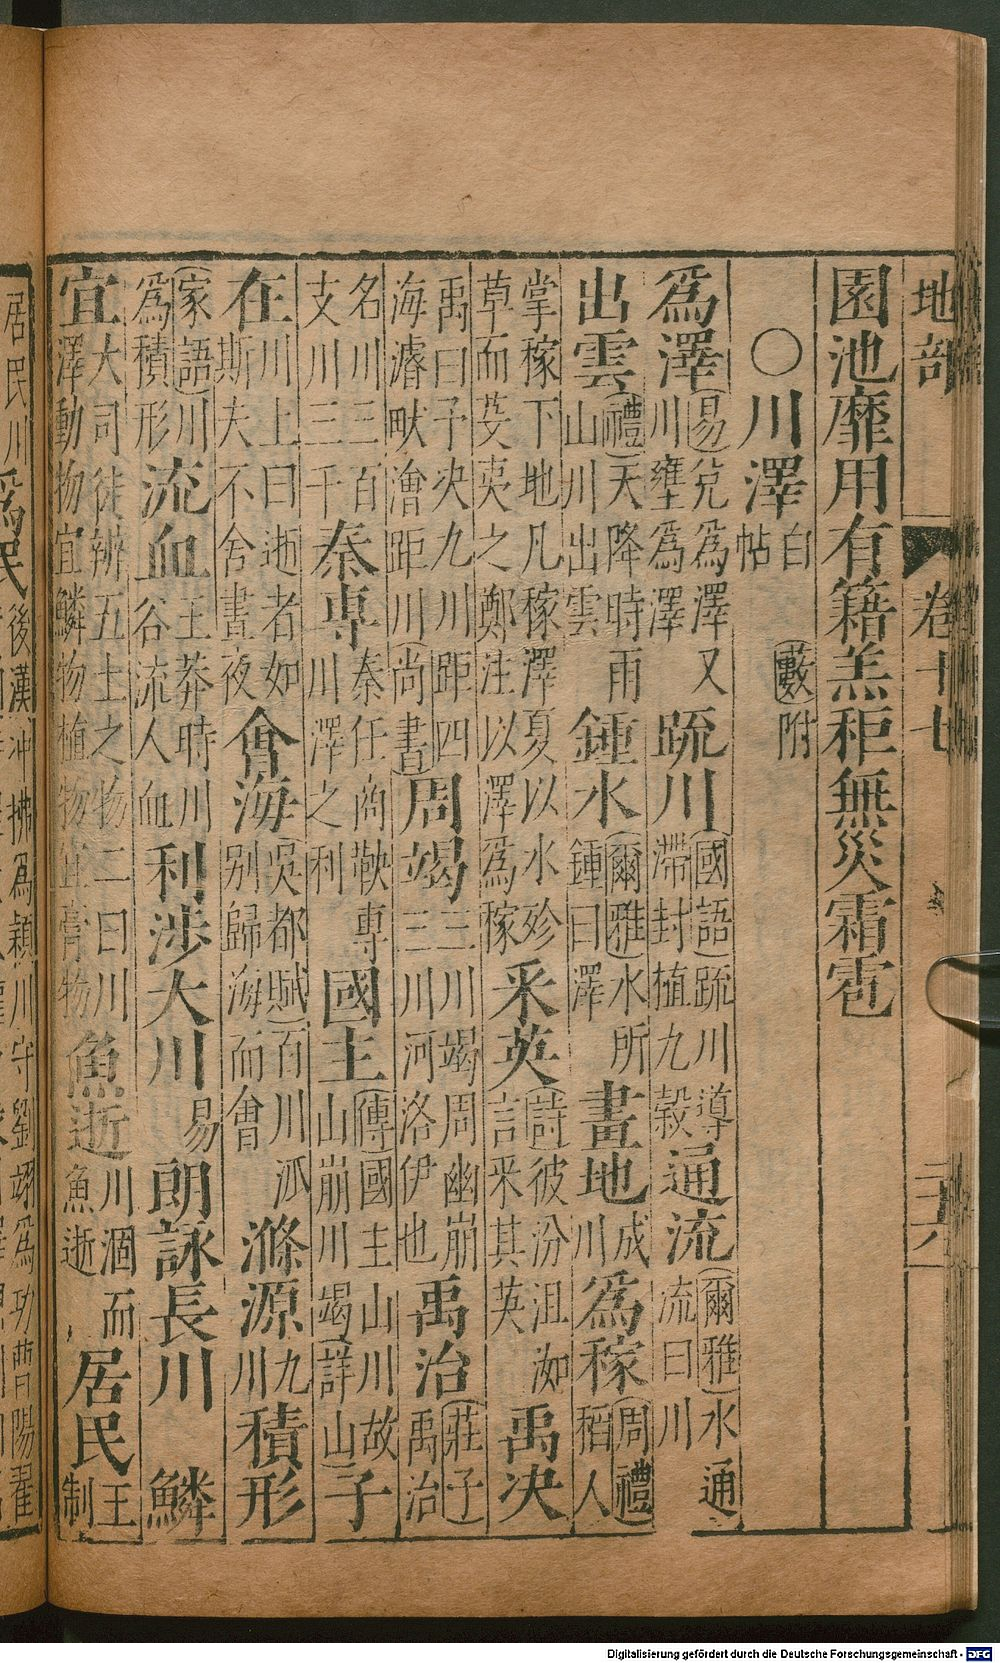 地部 卷十七 二十六
園池靡用有籍羔秬無災霜雹
〇川澤白帖 藪附
爲澤易兌爲澤又川壅爲澤 疏川國語疏川導滯封植九穀 通流爾雅水通流曰川
出雲禮天降時雨山川出雲 鍾水爾雅水所鍾曰澤 畫地成川 爲稼周禮稻人
掌稼下地凡稼澤夏以水殄草而芟夷之鄭注以澤爲稼 釆英詩彼汾沮洳言釆其英 禹决
禹曰予决九川距四海濬畎澮距川尚書 周竭三川竭周幽崩三川河洛伊也 禹治莊子禹治
名川三百支川三千 秦専秦任商鞅専川澤之利 國主傳國主山川故山崩川竭詳山 子
在川上曰逝者如斯夫不舍晝夜 會海吳都賦百川派别歸海而會 滌源九川 積形
家語川爲積形 流血王莽時川谷流人血 利涉大川易 朗詠長川 鱗
宜大司徒辨五土之物二曰川澤動物宜鱗物植物宜膏物 魚逝川涸而魚逝 居民王制
居民川 爲民後漢
Digitalisierung gefördert durch die Deutsche Forschungsgemeinschaft - DFG